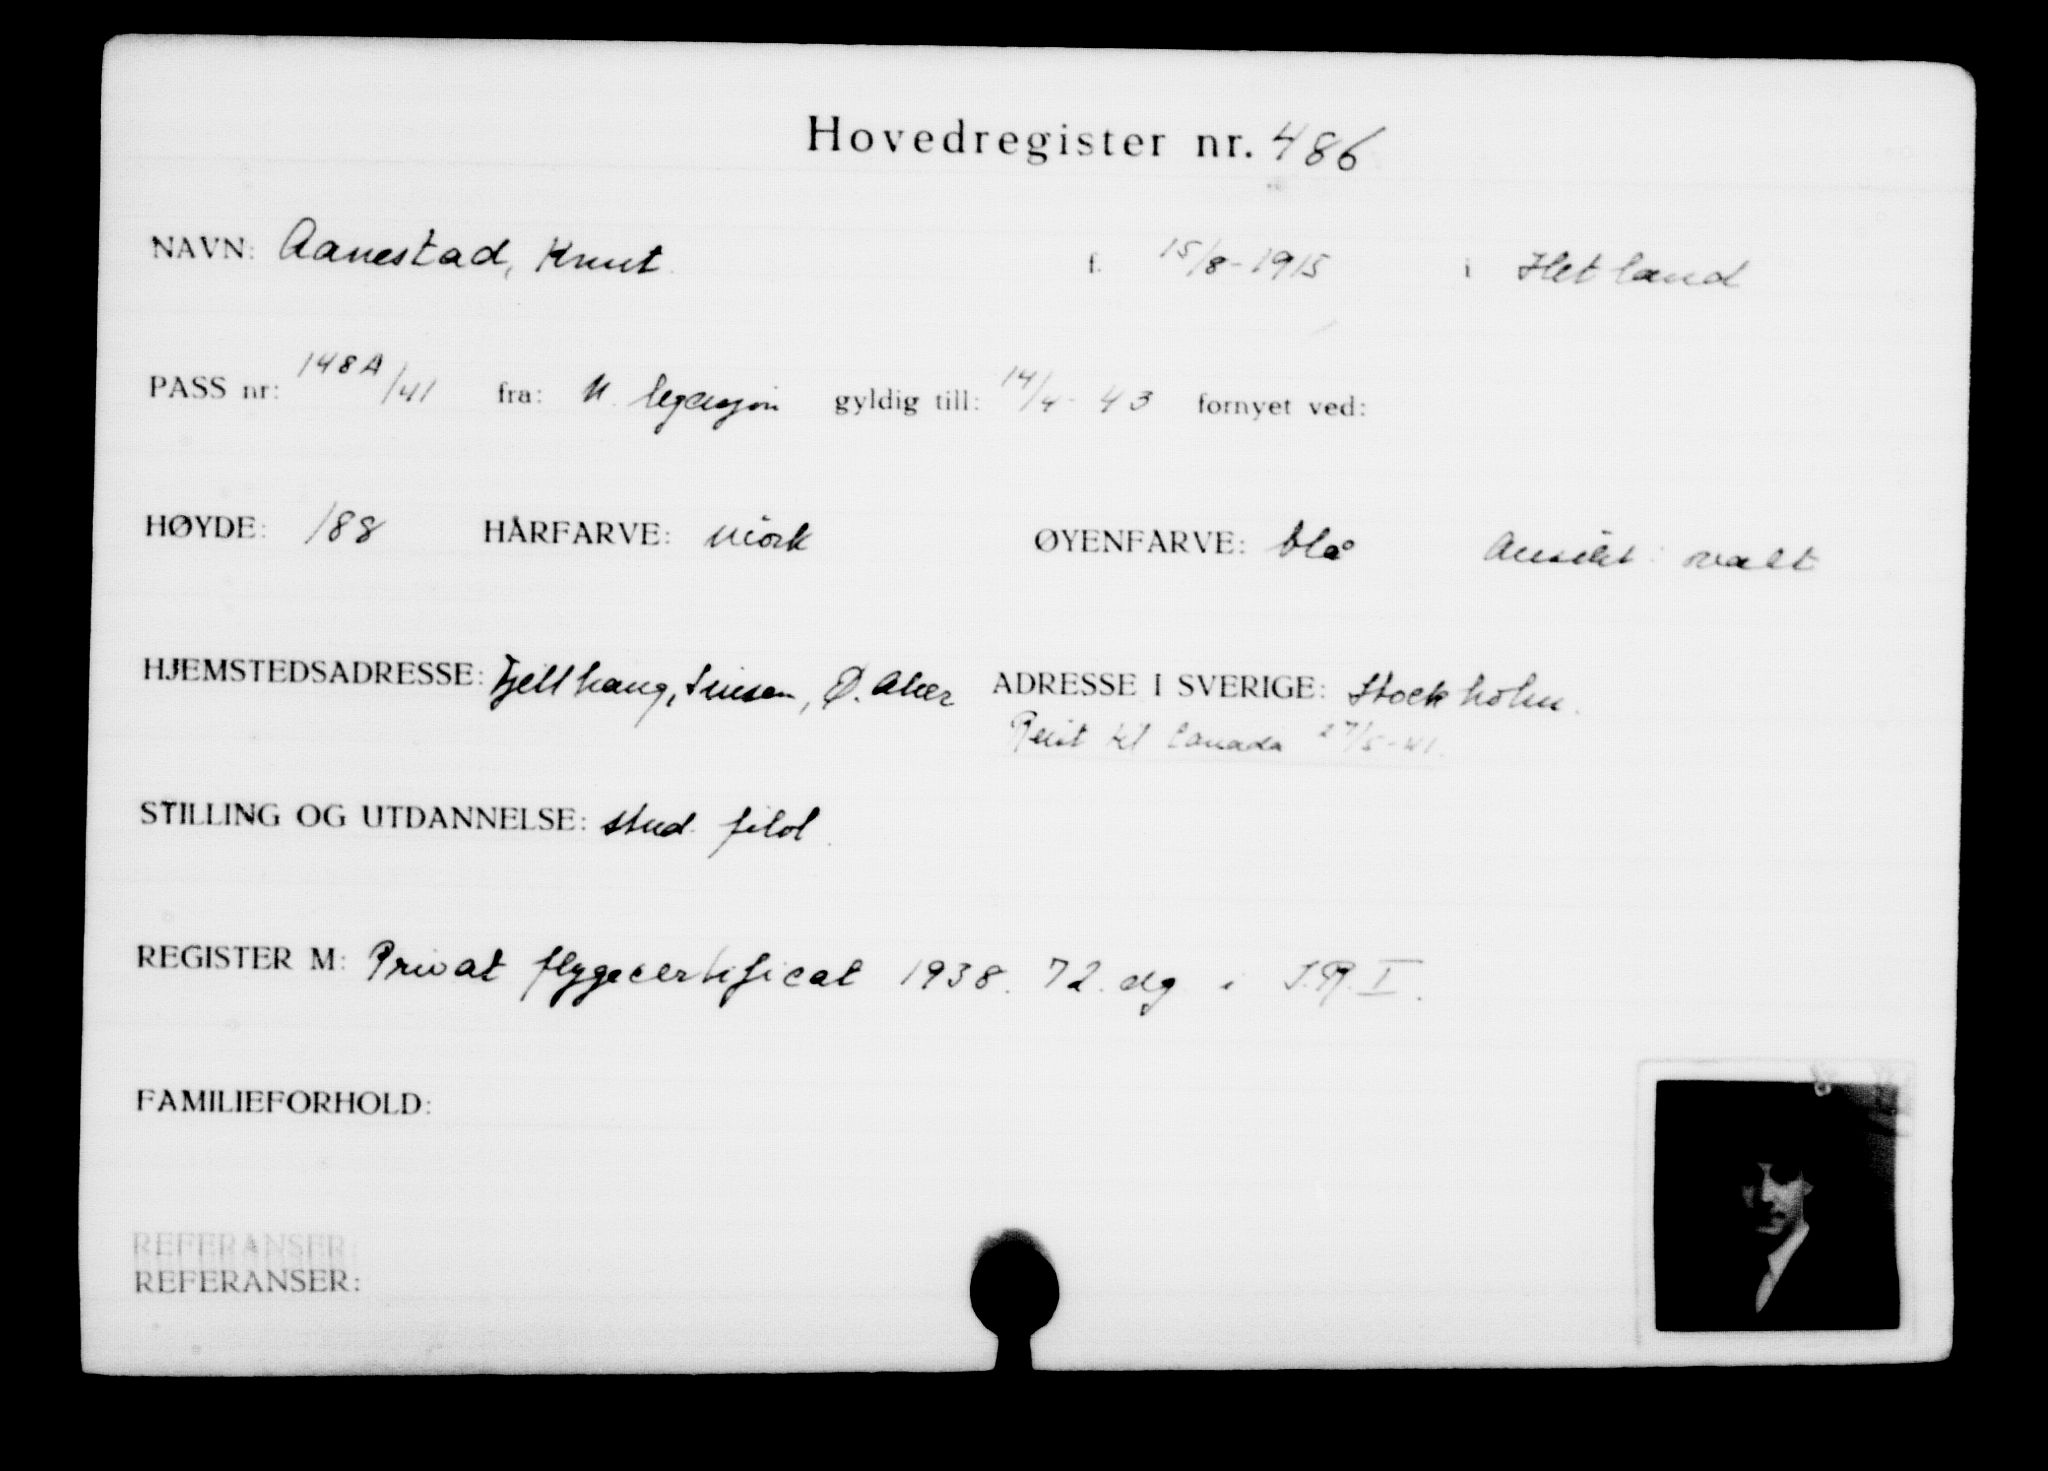 Hovedregister nr. 486
NAVN: Aanestad, Knut. f. 15/8-1915 i Hetland
PASS nr: 148A/41 fra: N. legasjon gyldig till: 14/4-43 fornyet ved:
HØYDE: 188 HÅRFARVE: mörk ØYENFARVE: blå Ansikt: ovalt
HJEMSTEDSADRESSE: Fjellhaug, Sinsen, Ø. Aker ADRESSE I SVERIGE: Stockholm.
Reist til Canada 27/5-41.
STILLING OG UTDANNELSE: stud. filol.
REGISTER M: Privat flygecertificat 1938. 72. dg i I.R. I.
FAMILIEFORHOLD:
REFERANSER:
REFERANSER: